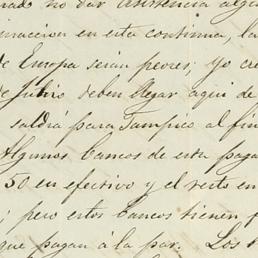 no dar asistencia algu
macion en esta continua, la
de Europa serian peores; yo cre
de Junio deben llegar aqui de
saldrá para Tampico al fin
Algunos bancos de esta paga
50 en efectivo y el resto en
; pero estos bancos tienen p
que pagan á la par. Los